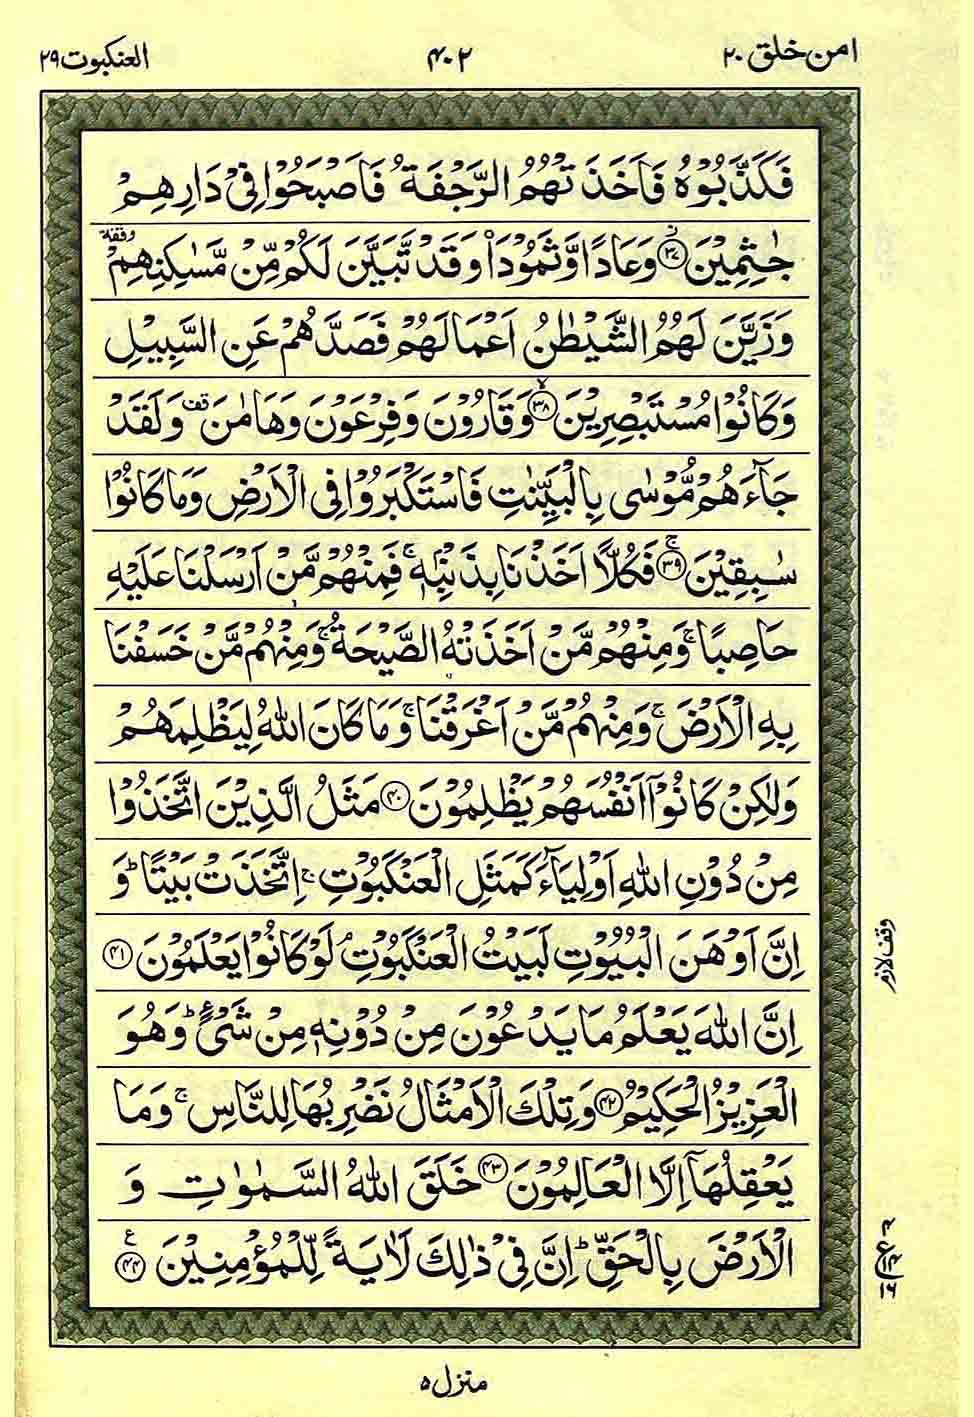 امن خلق ۲۰
۴۰۲
العنکبوت ۲۹
فَكَذَّبُوْهُ فَاَخَذَتْهُمُ الرَّجْفَةُ فَاَصْبَحُوْا فِيْ دَارِهِمْ
جٰثِمِيْنَ ۳۷ وَعَادًا وَّثَمُوْدَا۟ وَقَدْ تَّبَيَّنَ لَكُمْ مِّنْ مَّسٰكِنِهِمْ وقفة
وَزَيَّنَ لَهُمُ الشَّيْطٰنُ اَعْمَالَهُمْ فَصَدَّهُمْ عَنِ السَّبِيْلِ
وَكَانُوْا مُسْتَبْصِرِيْنَ ۳۸ وَقَارُوْنَ وَفِرْعَوْنَ وَهَامٰنَ قف وَلَقَدْ
جَآءَهُمْ مُّوْسٰى بِالْبَيِّنٰتِ فَاسْتَكْبَرُوْا فِى الْاَرْضِ وَمَا كَانُوْا
سٰبِقِيْنَ ۳۹ فَكُلًّا اَخَذْنَا بِذَنْۢبِهٖ ۚ فَمِنْهُمْ مَّنْ اَرْسَلْنَا عَلَيْهِ
حَاصِبًا ۚ وَمِنْهُمْ مَّنْ اَخَذَتْهُ الصَّيْحَةُ ۚ وَمِنْهُمْ مَّنْ خَسَفْنَا
بِهِ الْاَرْضَ ۚ وَمِنْهُمْ مَّنْ اَغْرَقْنَا ۚ وَمَا كَانَ اللّٰهُ لِيَظْلِمَهُمْ
وَلٰكِنْ كَانُوْٓا اَنْفُسَهُمْ يَظْلِمُوْنَ ۴۰ مَثَلُ الَّذِيْنَ اتَّخَذُوْا
مِنْ دُوْنِ اللّٰهِ اَوْلِيَآءَ كَمَثَلِ الْعَنْكَبُوْتِ ۚ اِتَّخَذَتْ بَيْتًا ؕ وَ
اِنَّ اَوْهَنَ الْبُيُوْتِ لَبَيْتُ الْعَنْكَبُوْتِ ۘ لَوْ كَانُوْا يَعْلَمُوْنَ ۴۱
اِنَّ اللّٰهَ يَعْلَمُ مَا يَدْعُوْنَ مِنْ دُوْنِهٖ مِنْ شَيْءٍ ؕ وَهُوَ
الْعَزِيْزُ الْحَكِيْمُ ۴۲ وَتِلْكَ الْاَمْثَالُ نَضْرِبُهَا لِلنَّاسِ ۚ وَمَا
يَعْقِلُهَآ اِلَّا الْعَالِمُوْنَ ۴۳ خَلَقَ اللّٰهُ السَّمٰوٰتِ وَ
الْاَرْضَ بِالْحَقِّ ؕ اِنَّ فِيْ ذٰلِكَ لَاٰيَةً لِّلْمُؤْمِنِيْنَ ۴۴ ع
وقف لازم
۴
ع ۱۴
۱۶
منزل ۵